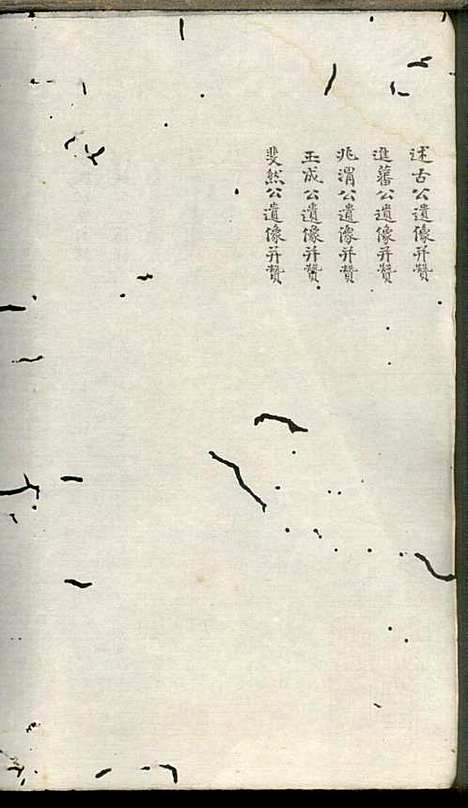 述古公遺像并贊
進蕃公遺像并贊
兆渭公遺像并贊
玉成公遺像并贊
斐然公遺像并贊